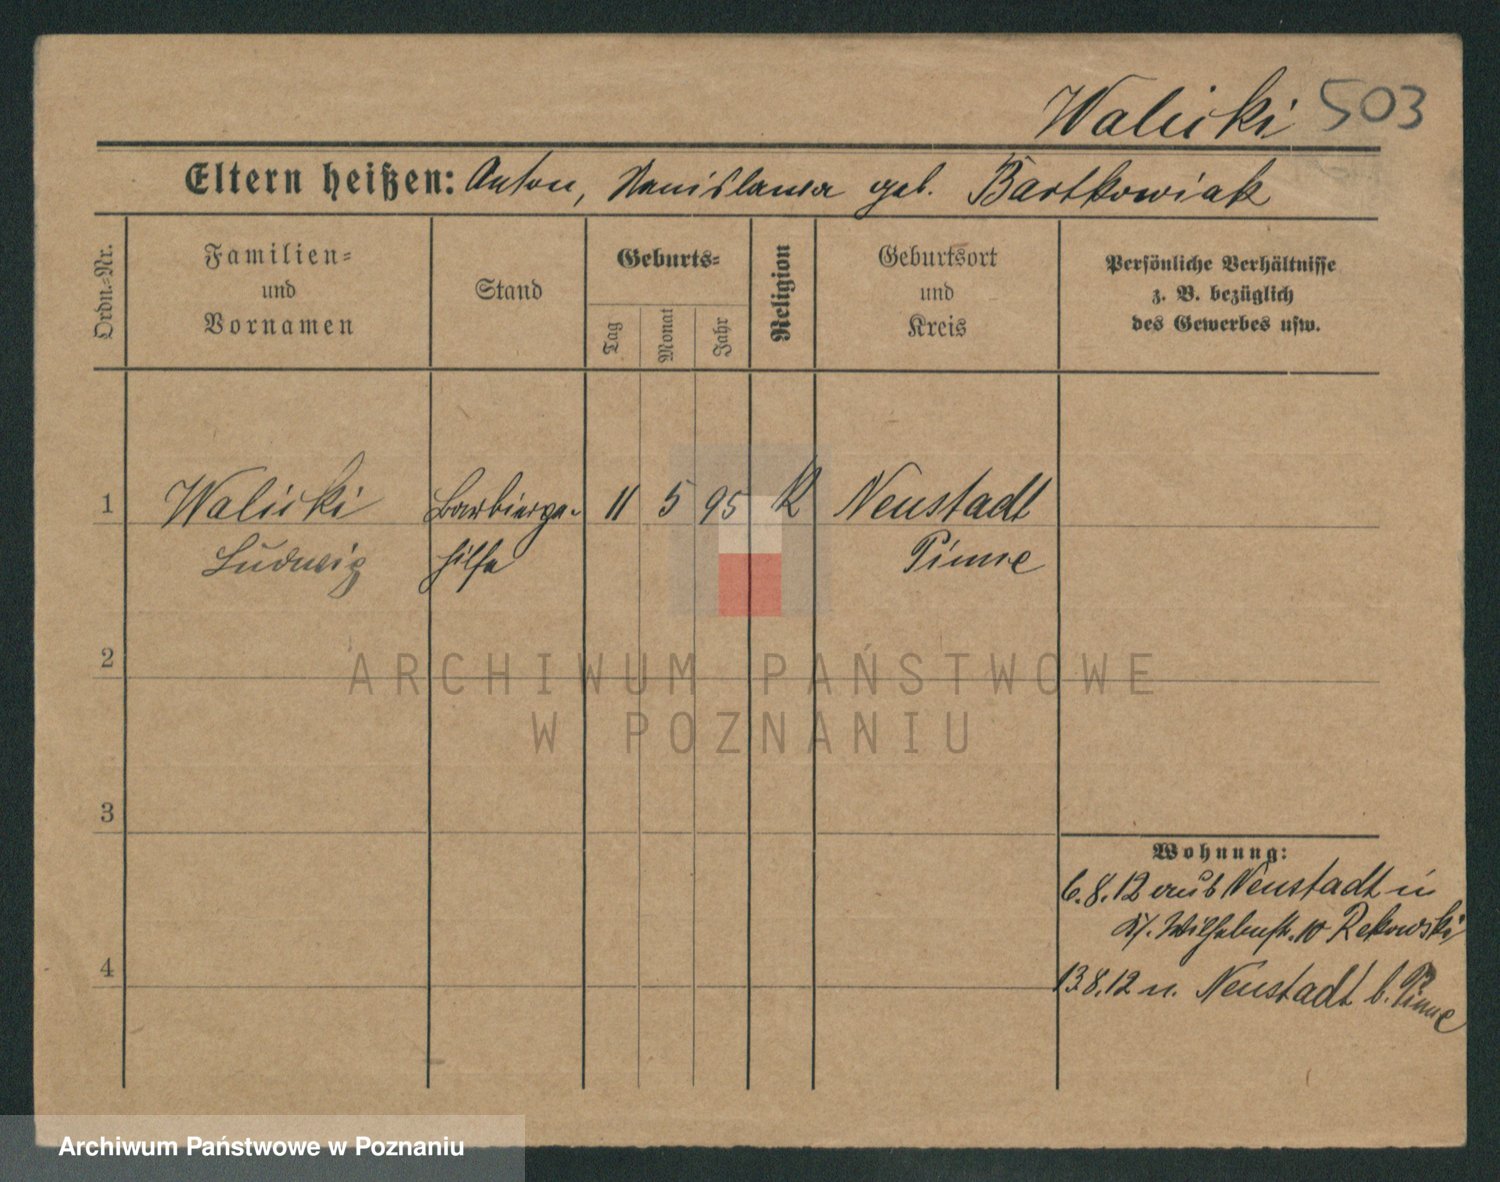 Walicki 503
Eltern heißen: Anton, Stanislawa geb. Bartkowiak
Ordn.=Nr.
Familien=
und
Vornamen
Stand
Geburts=
Tag
Monat
Jahr
Religion
Geburtsort
und
Kreis
Persönliche Verhältnisse
z. B. bezüglich
des Gewerbes usw.
1 Walicki Barbierge- 11 5 95 K Neustadt
Ludwig hilfe Pinne
2
ARCHIWUM PAŃSTWOWE
W POZNANIU
3
Wohnung:
6.8.12 aus Neustadt in
Wilhelmstr. 10 Rekowski
4
13.8.12 n. Neustadt b. Pinne
Archiwum Państwowe w Poznaniu